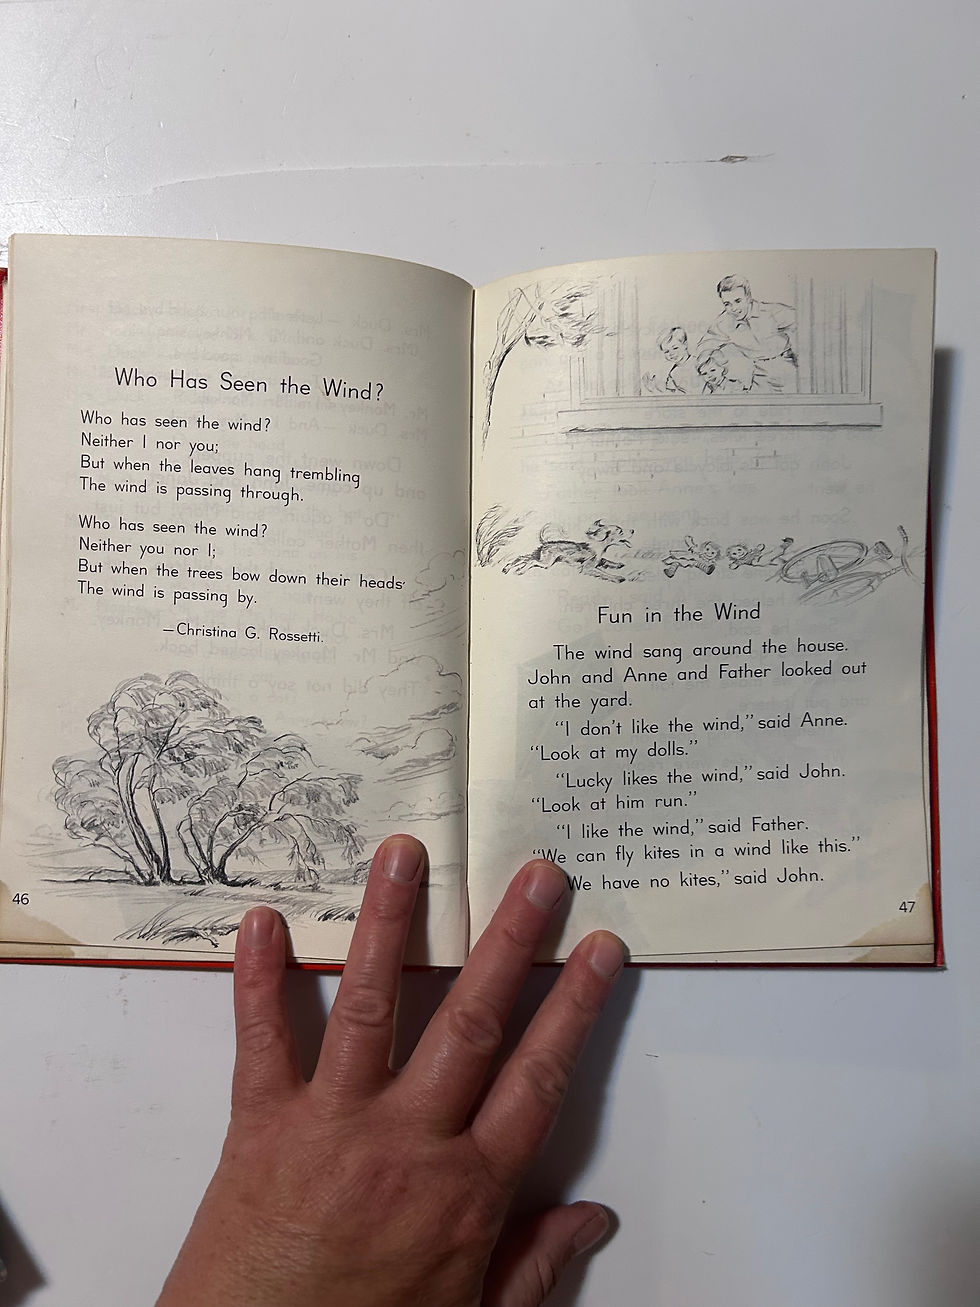 Who Has Seen the Wind?
Who has seen the wind?
Neither I nor you;
But when the leaves hang trembling
The wind is passing through.
Who has seen the wind?
Neither you nor I;
But when the trees bow down their heads
The wind is passing by.
—Christina G. Rossetti.
46
Fun in the Wind
The wind sang around the house.
John and Anne and Father looked out
at the yard.
“I don’t like the wind,” said Anne.
“Look at my dolls.”
“Lucky likes the wind,” said John.
“Look at him run.”
“I like the wind,” said Father.
“We can fly kites in a wind like this.”
We have no kites,” said John.
47